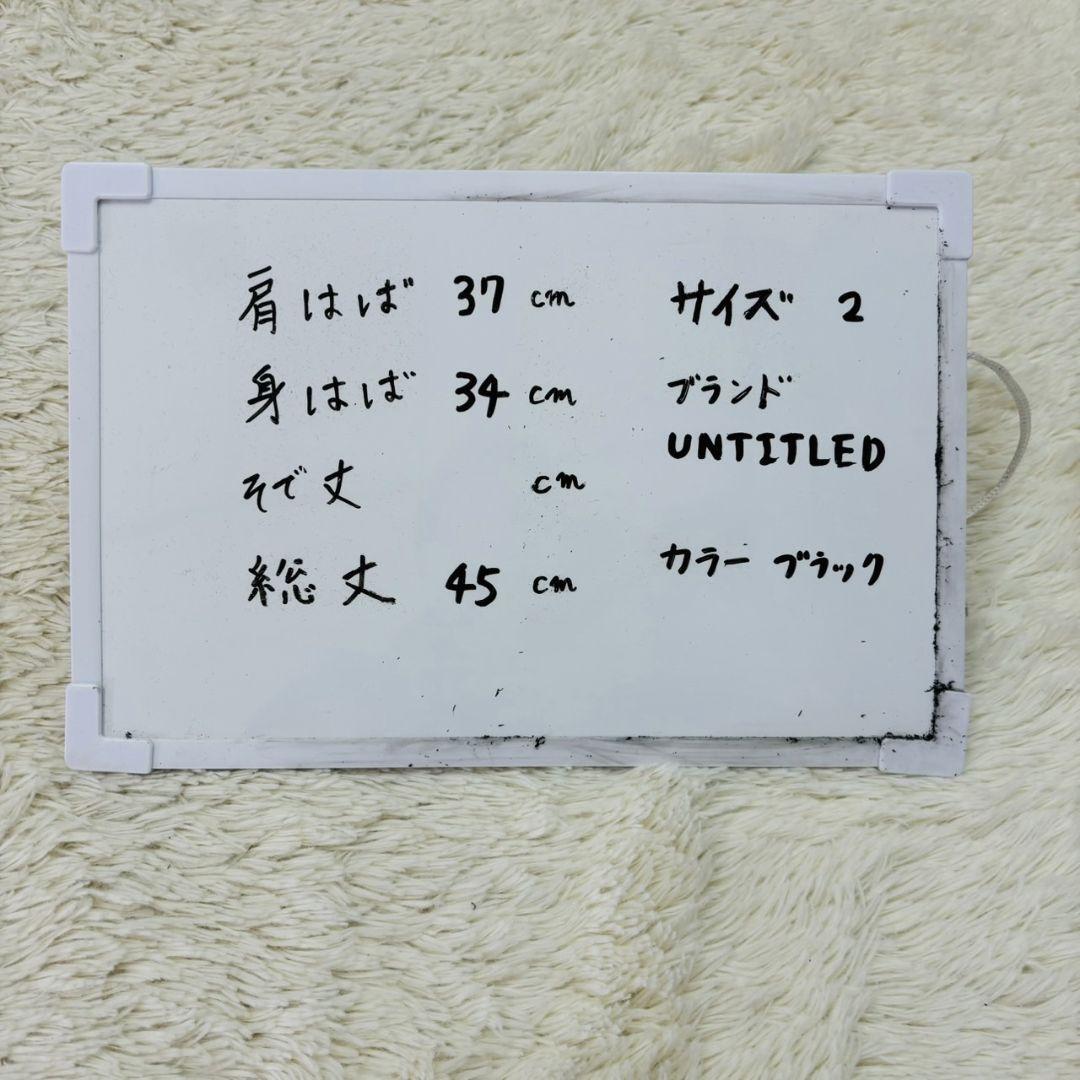 肩はば 37 cm
身はば 34 cm
そで丈 cm
総丈 45 cm
サイズ 2
ブランド
UNTITLED
カラー ブラック